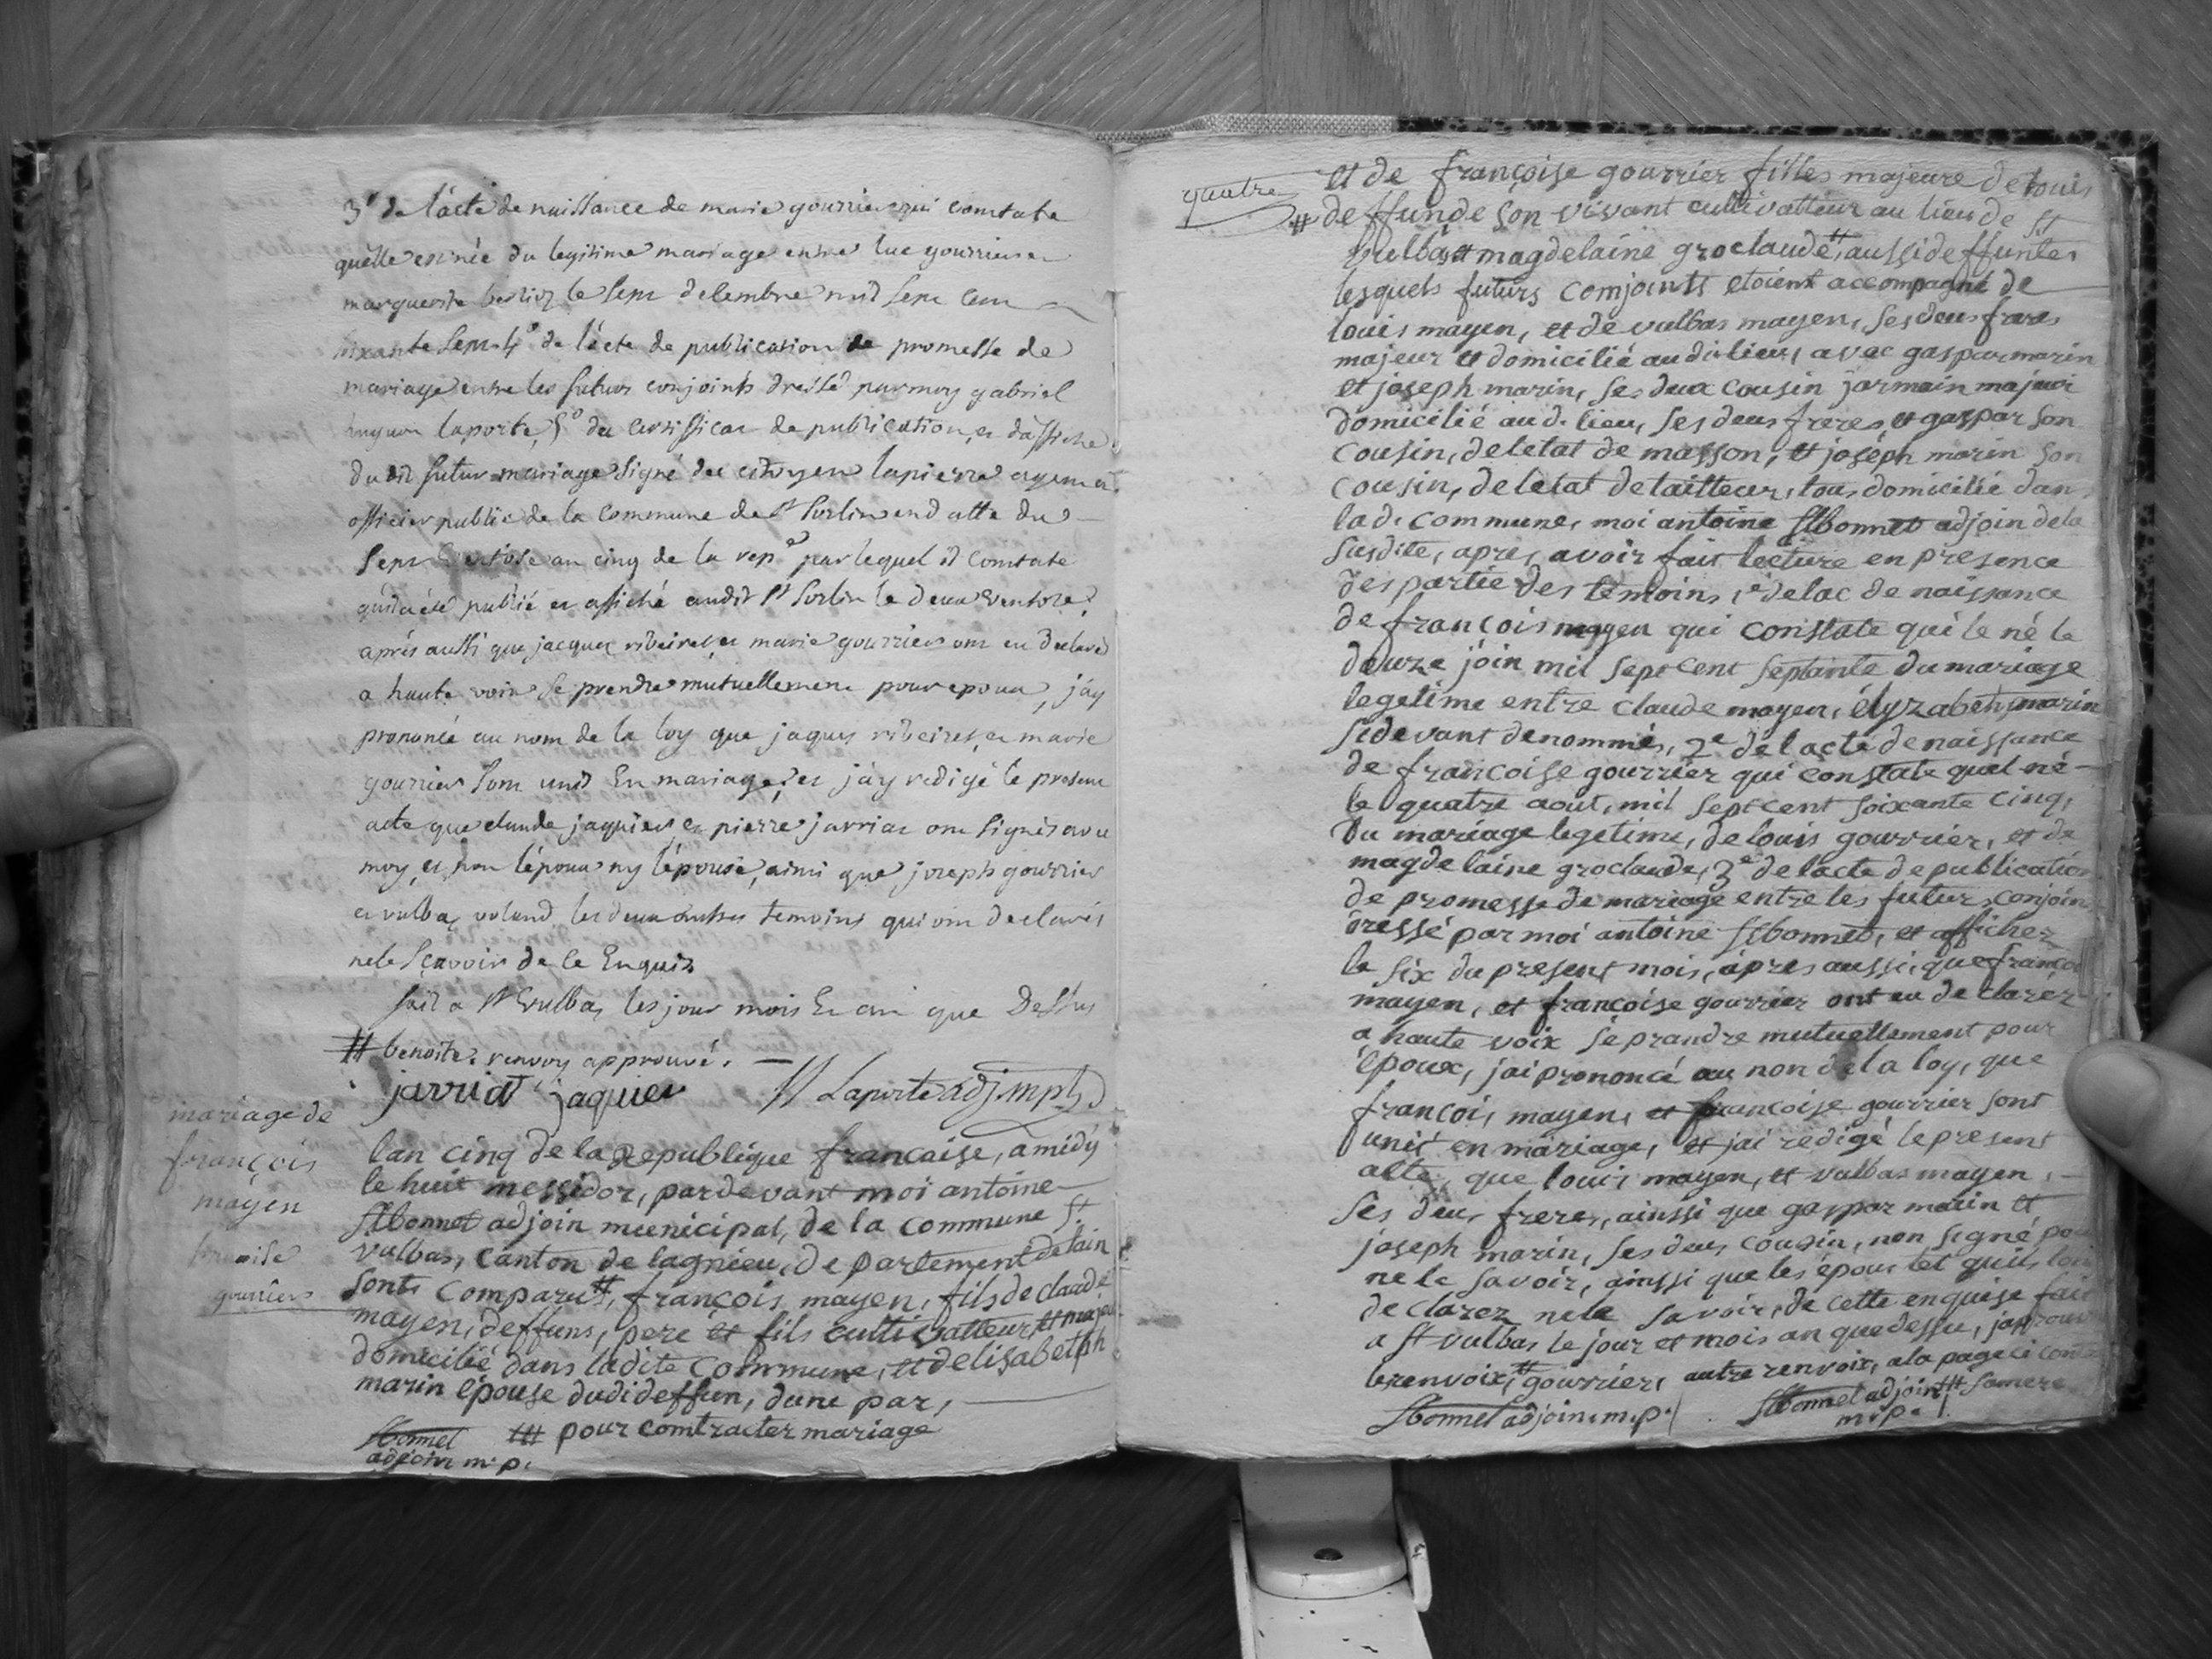 3° de l'acte de naissance de marie gourrier qui constate
quelle est née du legitime mariage entre luc gourrier et
marguerite le sept decembre mil sept cent
soixante sept 4° de l'acte de publication de promesse de
mariage entre les futurs conjoints dressé par moy gabriel
laporte, 5° du certifficat de publication et d'affiche
dudit futur mariage signé du citoyen lapierre agent et
officier public de la commune de St Sorlin end atte du
sept ventose an cinq de la rep.e par lequel il constate
qu'il a été publié et affiché audit St Sorlin le deux ventose,
après aussi que jacques ribeiret, et marie gourrier ont eu declaré
a haute voix se prendre mutuellement pour epoux, j'ay
prononcé au nom de la loy que jaques ribeiret, et marie
gourrier sont unis En mariage, et j'ay redigé le present
acte que claude jaquier et pierre jarriat ont signés avec
moy, et non l'époux ny l'épouse, ainsi que joseph gourrier
et vulbas voland les deux autres temoins qui ont declarés
ne le sçavoir de ce Enquis
fait a St Vulbas les jour mois En an que Dessus
# benoite. renvoy approuvé. —
jarriat jaquier Laporte adj. mpl
mariage de
françois
mayen
françoise
gourriers
lan cinq de la republique francaise, a midÿ
le huit messidor, pardevant moi antoine
Stbonnet adjoin municipal, de la commune St
vulbas, canton de lagnieu, departement de lain
sont comparu #, françois mayen, fils de claude
mayen, deffuns, pere et fils cultivatteur, et majeu
domicilié dans ladite commune, et delisabetph
marin épouse dudi deffun, dune par, —
Stbonnet ## pour comtracter mariage
adjoin m. p.
quatre
et de françoise gourrier filles majeure de louis
# deffunde son vivant cultivatteur au lieu de St
Vulbas et magdelaine groclaude #, aussi deffuntes
lesquels futurs comjoints etoient accompagné de
louis mayen, et de vulbas mayen, ses deus frares
majeur et domicilié audi lieu, avec gaspar marin
et joseph marin, ses deux cousin jarmain majeur
domicilié au d. lieu, ses deus freres, et gaspar son
cousin, deletat de masson, et joseph marin son
cousin, deletat de tailleur, tous domicilié dans
la d. commune, moi antoine Stbonnet adjoin dela
susdite, apres avoir fait lecture en presence
des partie des témoins, 1e de lac de naissance
de françois mayen qui constate qué le né le
douze join mil sept cent septante du mariage
legetime entre claude mayen, élyzabeth marin
sidevant denommés, 2e de l acte de naissance
de francoise gourrier qui constate quel né
le quatre aout, mil sept cent soixante cinq,
du mariage legetime, de louis gourrier, et de
magdelaine groclaude, 3e de lacte de publication
de promesse de mariage entre les futurs conjoin
dressé par moi antoine Stbonnet, et affichez
le six du present mois, apres aussi, que françoi
mayen, et françoise gourrier ont eu declarez
a haute voix se prandre mutuellement pour
époux, jai prononcé au non de la loy, que
françois mayen, et françoise gourrier sont
unis en mariage, et jai rédigé le present
atte, que louis mayen, et vulbas mayen,
ses deus freres, ainssi que gaspar marin et
joseph marin, ses deus cousin, non signé pour
ne le savoir, ainssi que les épous
declarez nele savoir, de cette enquise fait
a St vulbas le jour et mois an que dessu, japprouve
le renvoix, # gourrier, autre renvoix, ala page ci contre
Stbonnet adjoin. m. p. Stbonnet adjoin ## samere
m. p.